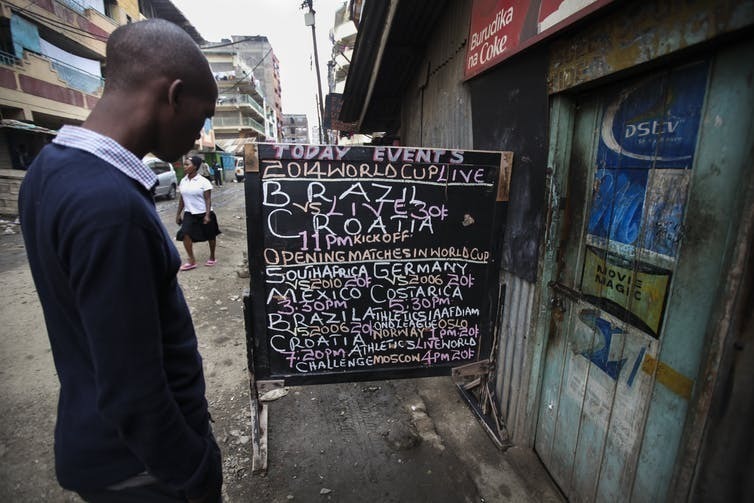 Burudika
na Coke
TODAY EVENTS
2014 WORLD CUP LIVE
BRAZIL
VS LIVE 30/-
CROATIA
11PM KICKOFF
OPENING MATCHES IN WORLD CUP
SOUTHAFRICA GERMANY
VS 2010 20/- VS 2006 20/-
MEXICO COSTARICA
3:30PM 5:30PM
BRAZIL ATHLETICS IAAF DIAM
VS 2006 20/- OND LEAGUE OSLO
CROATIA NORWAY 1PM 20/-
7:20PM ATHLETICS LIVE WORLD
CHALLENGE MOSCOW 4PM 20/-
DSTV
MOVIE
MAGIC